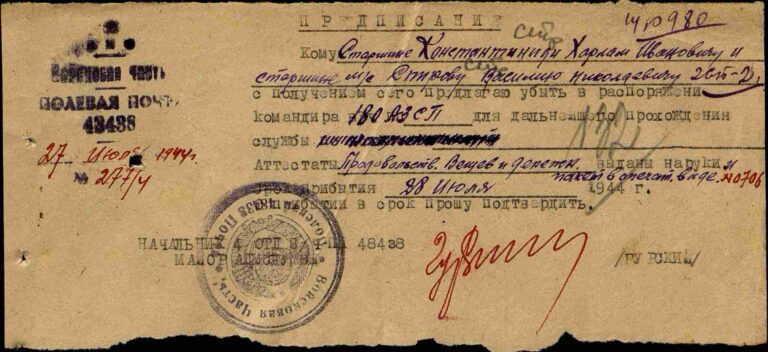 ПРЕДПИСАНИЕ
Войсковая часть
ПОЛЕВАЯ ПОЧТА
43488
27 июля 1944г.
№ 277/4
Кому Старшине Константиниди Харлам Ивановичу и
старшине м/с Василию Николаевичу
с получением сего предлагаю убыть в распоряжени
командира 180 АЗСП для дальнейшего прохождения
службы
Аттестаты Продовольств. Вещев и денежн. выданы на руки и
пакет в опечат. виде №0706
Срок прибытия 28 Июля 1944 г.
О прибытии в срок прошу подтвердить.
НАЧАЛЬНИК 4 ОТД
МАЙОР АДМ
/ГУРСКИЙ/
Войсковая Часть